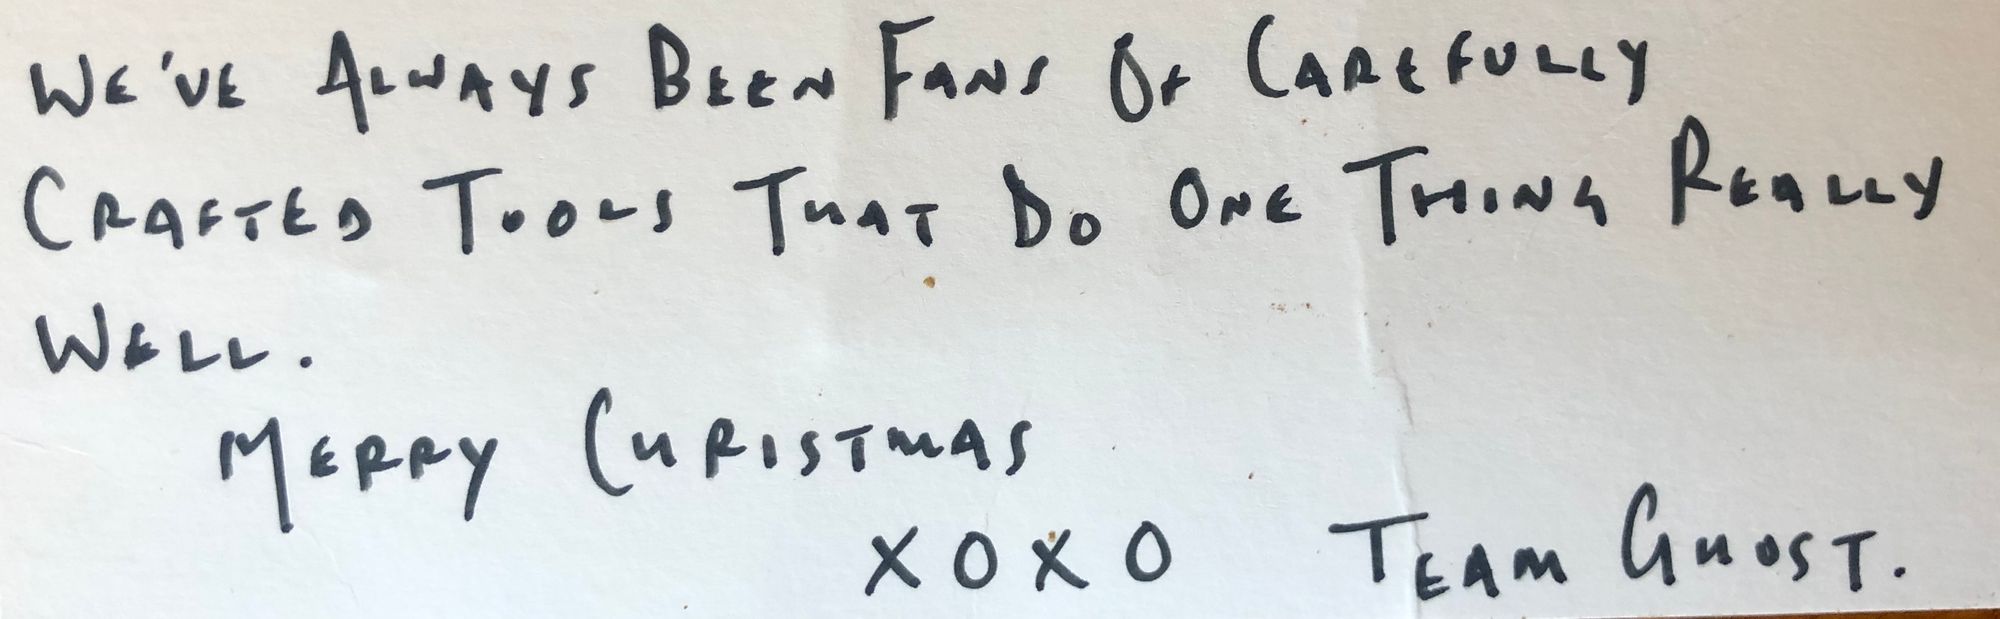 We've Always Been Fans Of Carefully
Crafted Tools That Do One Thing Really
Well.
Merry Christmas
XOXO Team Ghost.